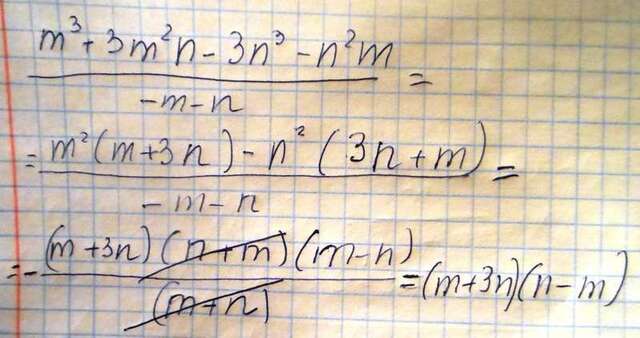 m³ + 3m²n - 3n³ - n²m
-m - n
=
= m²(m+3n) - n² (3n+m)
-m - n
=
= - (m+3n)(n+m)(m-n)
(m+n)
= (m+3n)(n-m)